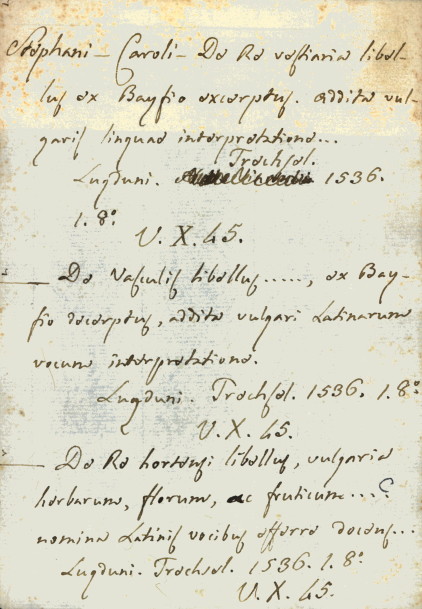 Stephani - Caroli - De Re vestiaria libel-
lus ex Bayfio excerptus. addita vul-
garis linguae interpretatione...
Trechsel.
Lugduni. 1536.
1. 8º
V. X. 45.
— De Vasculis libellus....., ex Bay-
fio decerptus, addita vulgari Latinarum
vocum interpretatione.
Lugduni. Trechsel. 1536. 1. 8º
V. X. 45.
— De Re hortensi libellus, vulgaria
herbarum, florum, ac fruticum....
nomina Latinis vocibus efferre docens...
Lugduni. Trechsel. 1536. 1. 8º
V. X. 45.